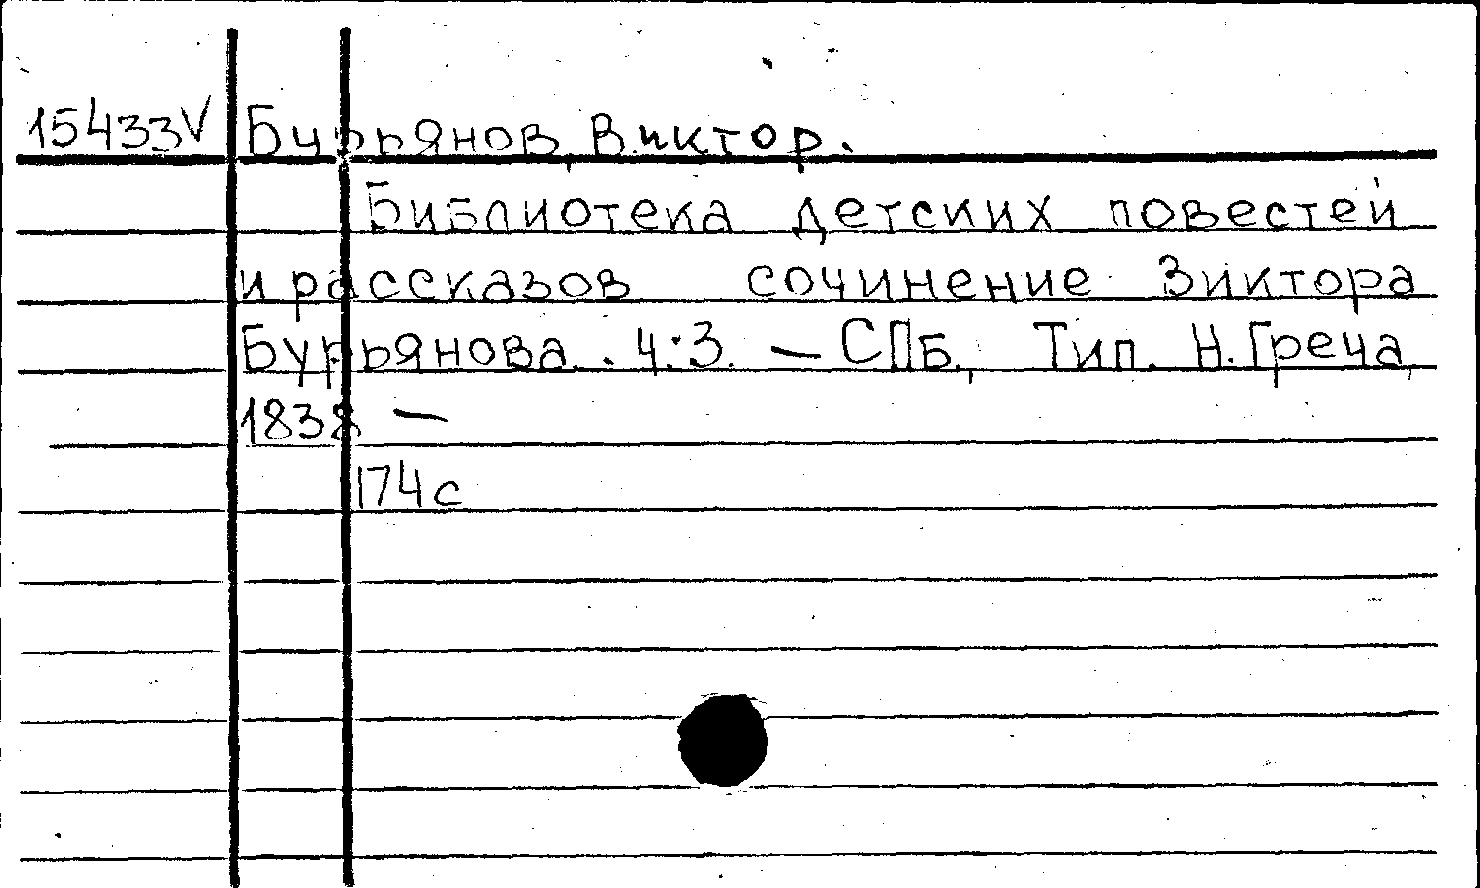 15433V Бурьянов, Виктор.
Библиотека детских повестей
и рассказов сочинение Виктора
Бурьянова. Ч.3. — СПб., Тип. Н. Греча,
1838 —
174 с